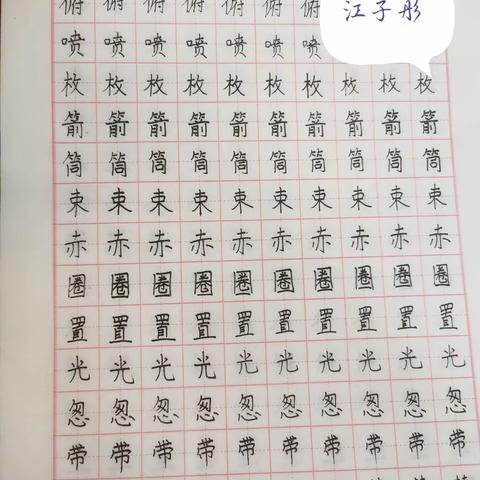 江子彤
俯 俯 俯 俯 俯 俯 俯
喷 喷 喷 喷 喷 喷 喷
枚 枚 枚 枚 枚 枚 枚 枚 枚 枚
箭 箭 箭 箭 箭 箭 箭 箭 箭 箭
筒 筒 筒 筒 筒 筒 筒 筒 筒 筒
束 束 束 束 束 束 束 束 束 束
赤 赤 赤 赤 赤 赤 赤 赤 赤 赤
圈 圈 圈 圈 圈 圈 圈 圈 圈 圈
置 置 置 置 置 置 置 置 置 置
光 光 光 光 光 光 光 光 光 光
忽 忽 忽 忽 忽 忽 忽 忽 忽 忽
带 带 带 带 带 带 带 带 带 带